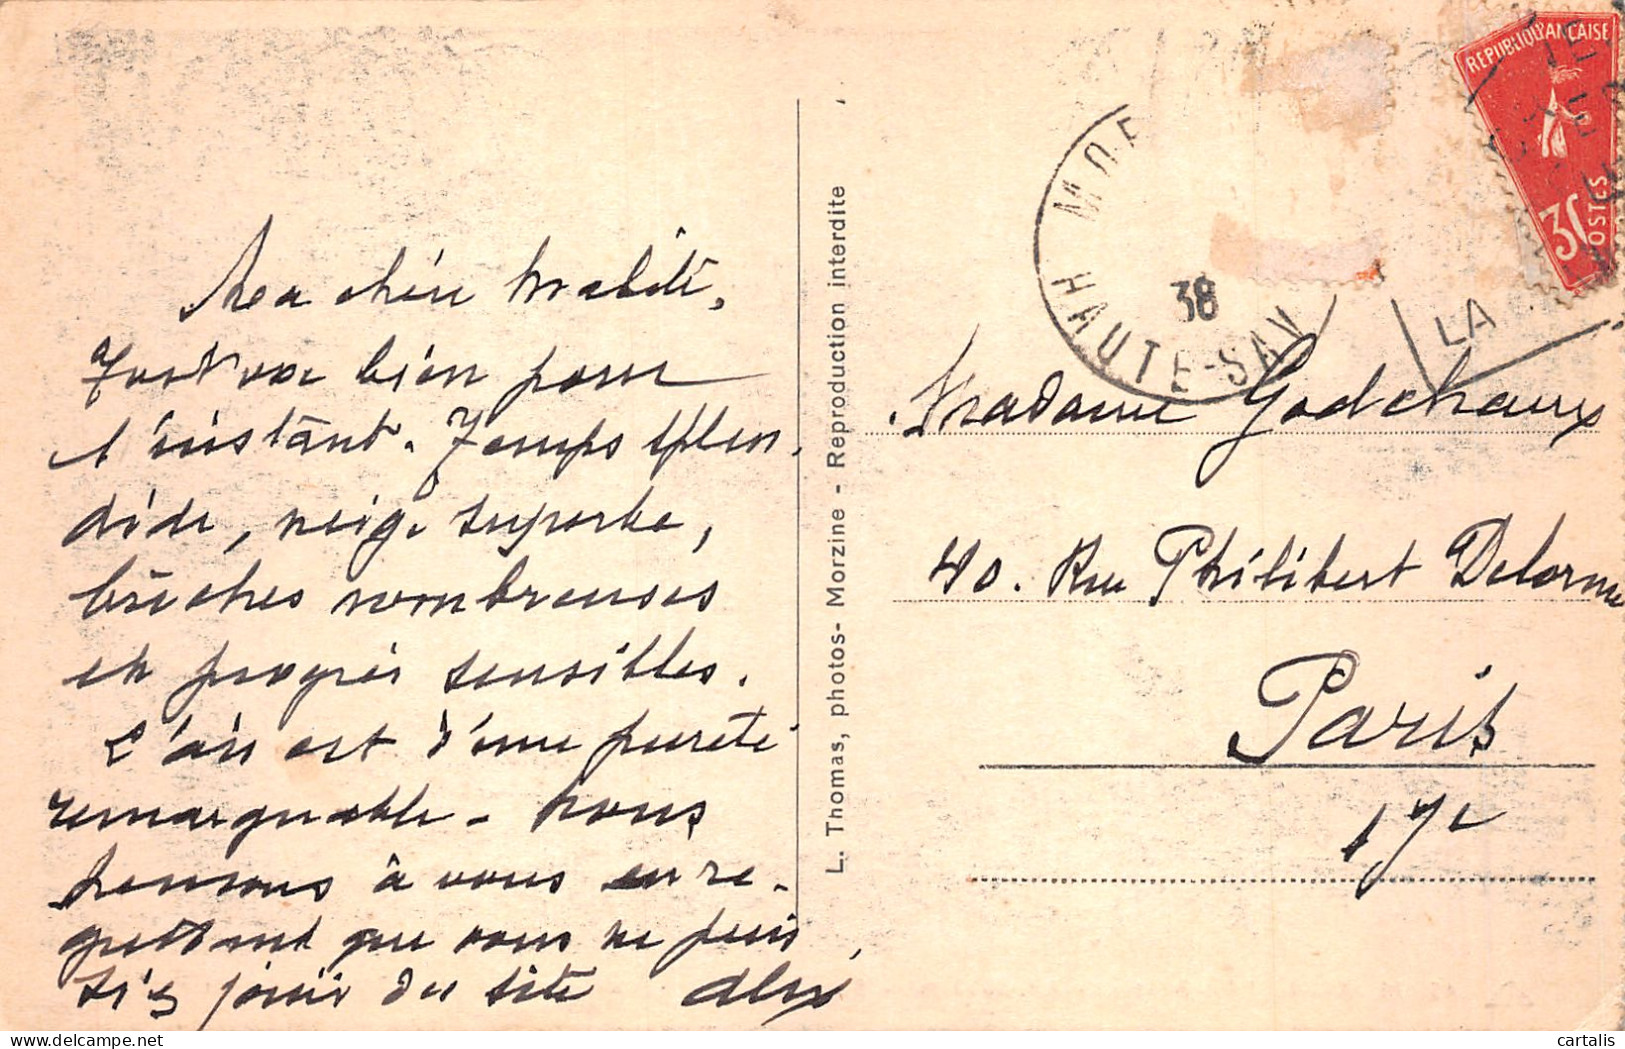 Ma chère Mabité,
Tout va bien pour
l'instant. Temps splen
dide, neige superbe,
bûches nombreuses
en progrès sensibles.
L'air est d'une pureté
remarquable - nous
pensons à vous en re-
grettant que vous ne puis
siez jouir du site Alex
L. Thomas, photos- Morzine - Reproduction interdite
MOR
HAUTE-SAV
38
REPUBLIQUE FRANÇAISE
30
POSTES
LA
Madame Godchaux
40. Rue Philibert Delorme
Paris
17e
cartalis